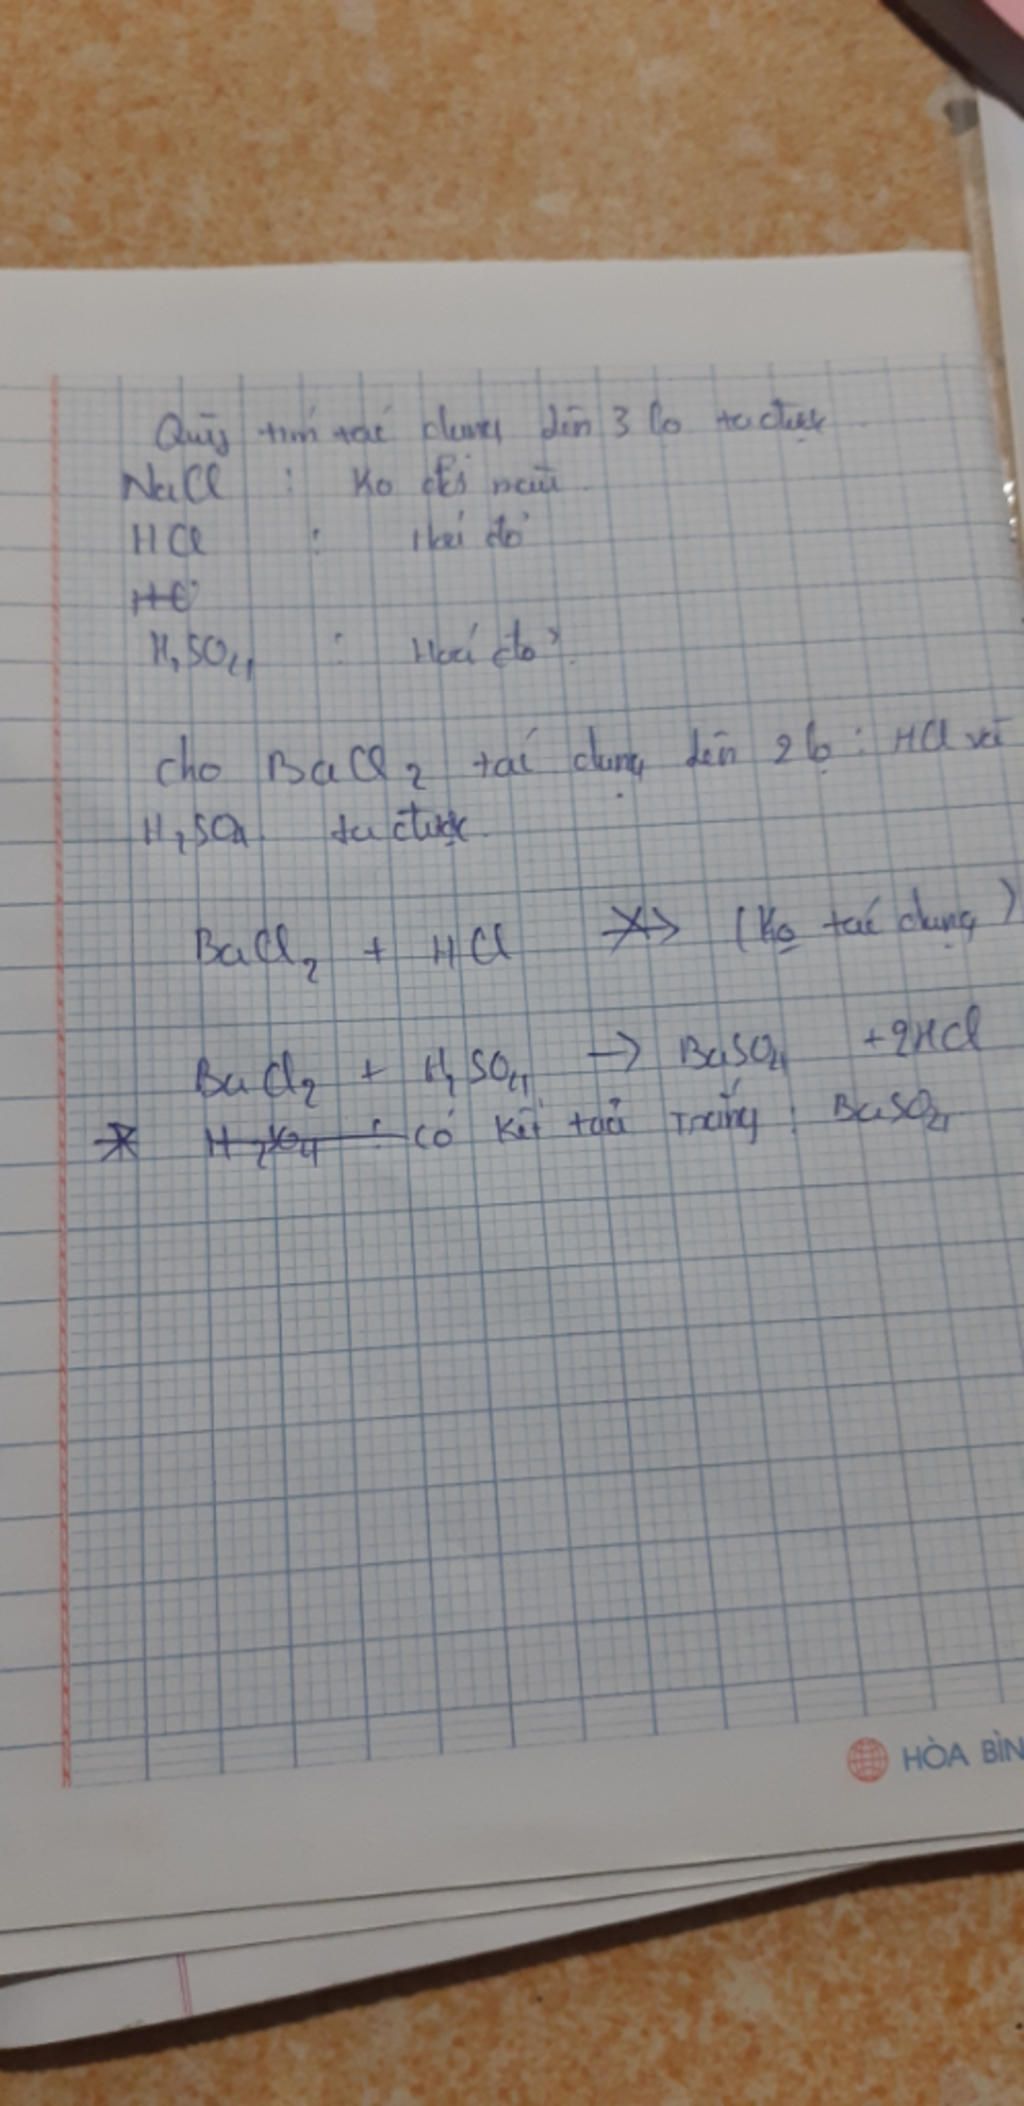 Quỳ tím tác dụng lên 3 lọ ta được
NaCl : Ko đổi màu
HCl : Hoá đỏ
H₂SO₄ : Hoá đỏ
cho BaCl₂ tác dụng lên 2 lọ : HCl và
H₂SO₄ ta được
BaCl₂ + HCl ↛ (Ko tác dụng)
BaCl₂ + H₂SO₄ → BaSO₄ + 2HCl
* có kết tủa trắng : BaSO₄
HÒA BÌN